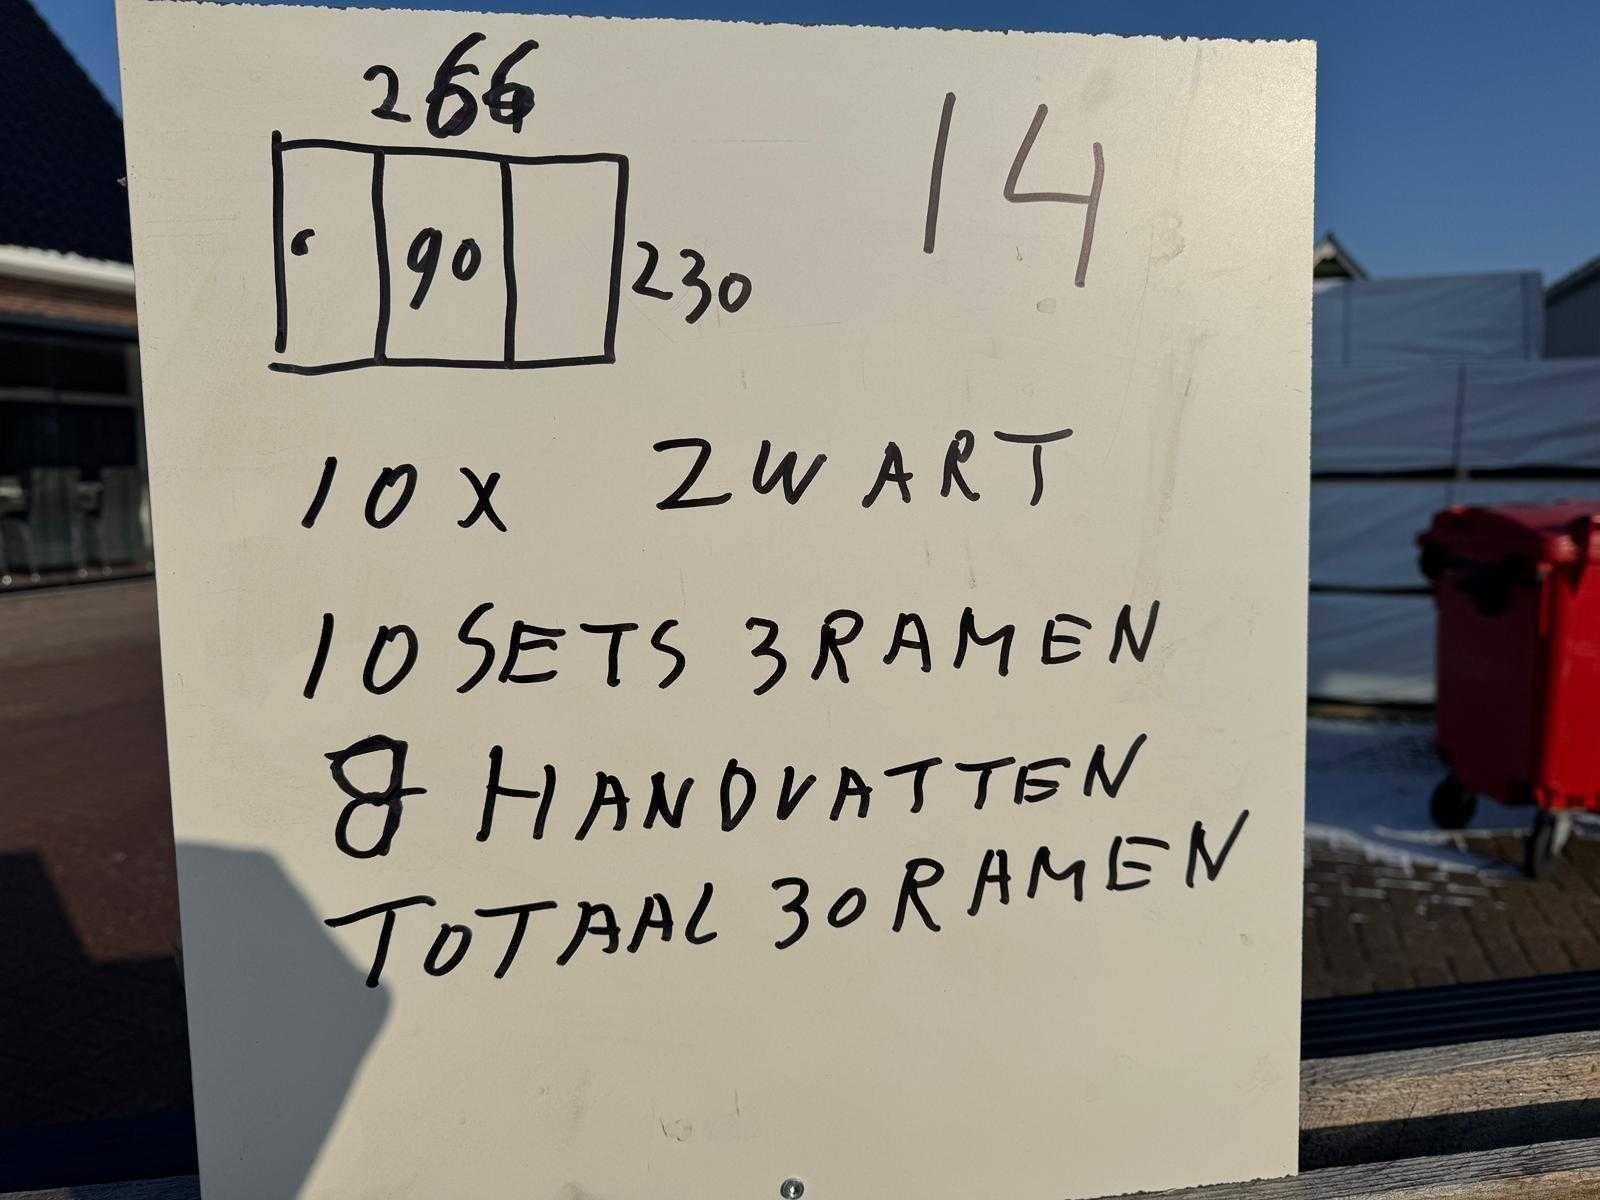 266
14
90
230
10 X ZWART
10 SETS 3 RAMEN
8 HANDVATTEN
TOTAAL 30 RAMEN